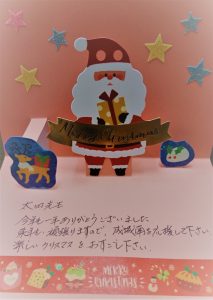 Merry Christmas
今年も一年ありがとうございました
来年も頑張りますので、成城南を応援して下さい
楽しいクリスマスをおすごし下さい
MERRY
CHRISTMAS